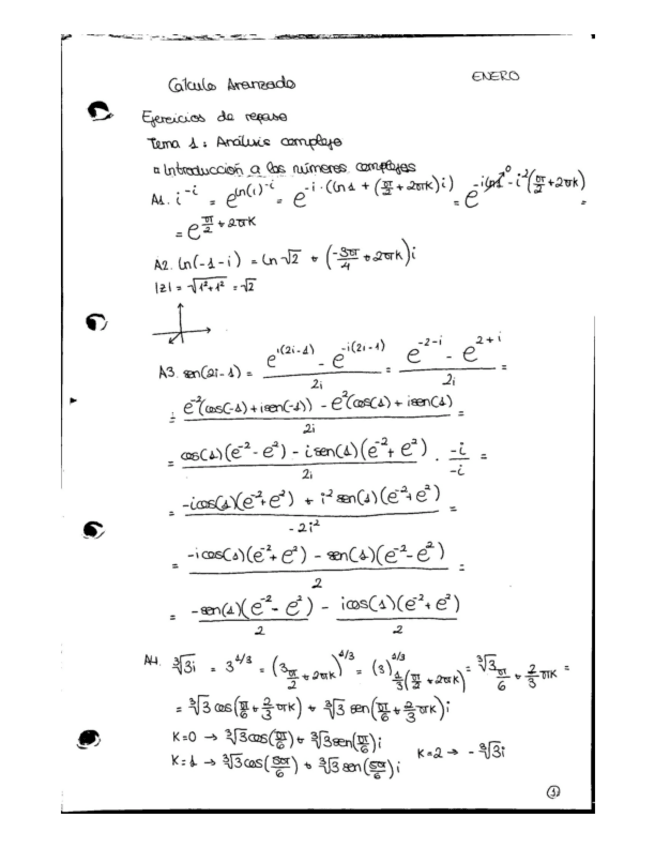 Calculo Avanzado
ENERO
Ejercicios de repaso
Tema 1: Análisis complejo
▫ Introducción a los números complejos
A1. i^{-i} = e^{ln(i)^{-i}} = e^{-i·(ln 1 + (π/2 + 2πk)i)} = e^{-i ln 1^0 - i^2(π/2 + 2πk)} =
= e^{π/2 + 2πk}
A2. ln(-1-i) = ln √2 + (-3π/4 + 2πk)i
|z| = √(1²+1²) = √2
A3. sen(2i-1) = (e^{i(2i-1)} - e^{-i(2i-1)})/2i = (e^{-2-i} - e^{2+i})/2i =
= (e^{-2}(cos(-1)+isen(-1)) - e^2(cos(1)+isen(1))/2i =
= (cos(1)(e^{-2} - e^2) - isen(1)(e^{-2} + e^2))/2i · -i/-i =
= (-icos(1)(e^{-2} + e^2) + i² sen(1)(e^{-2} + e^2))/-2i² =
= (-icos(1)(e^{-2} + e^2) - sen(1)(e^{-2} - e^2))/2 =
= -sen(1)(e^{-2} - e^2)/2 - icos(1)(e^{-2} + e^2)/2
A4. ∛3i = 3^{1/3} = (3_{π/2 + 2πk})^{1/3} = (3)^{1/3}_{1/3(π/2 + 2πk)} = ∛3_{π/6 + 2/3 πk} =
= ∛3 cos(π/6 + 2/3 πk) + ∛3 sen(π/6 + 2/3 πk)i
K=0 → ∛3cos(π/6) + ∛3sen(π/6)i
K=1 → ∛3cos(5π/6) + ∛3sen(5π/6)i
K=2 → -∛3i
1